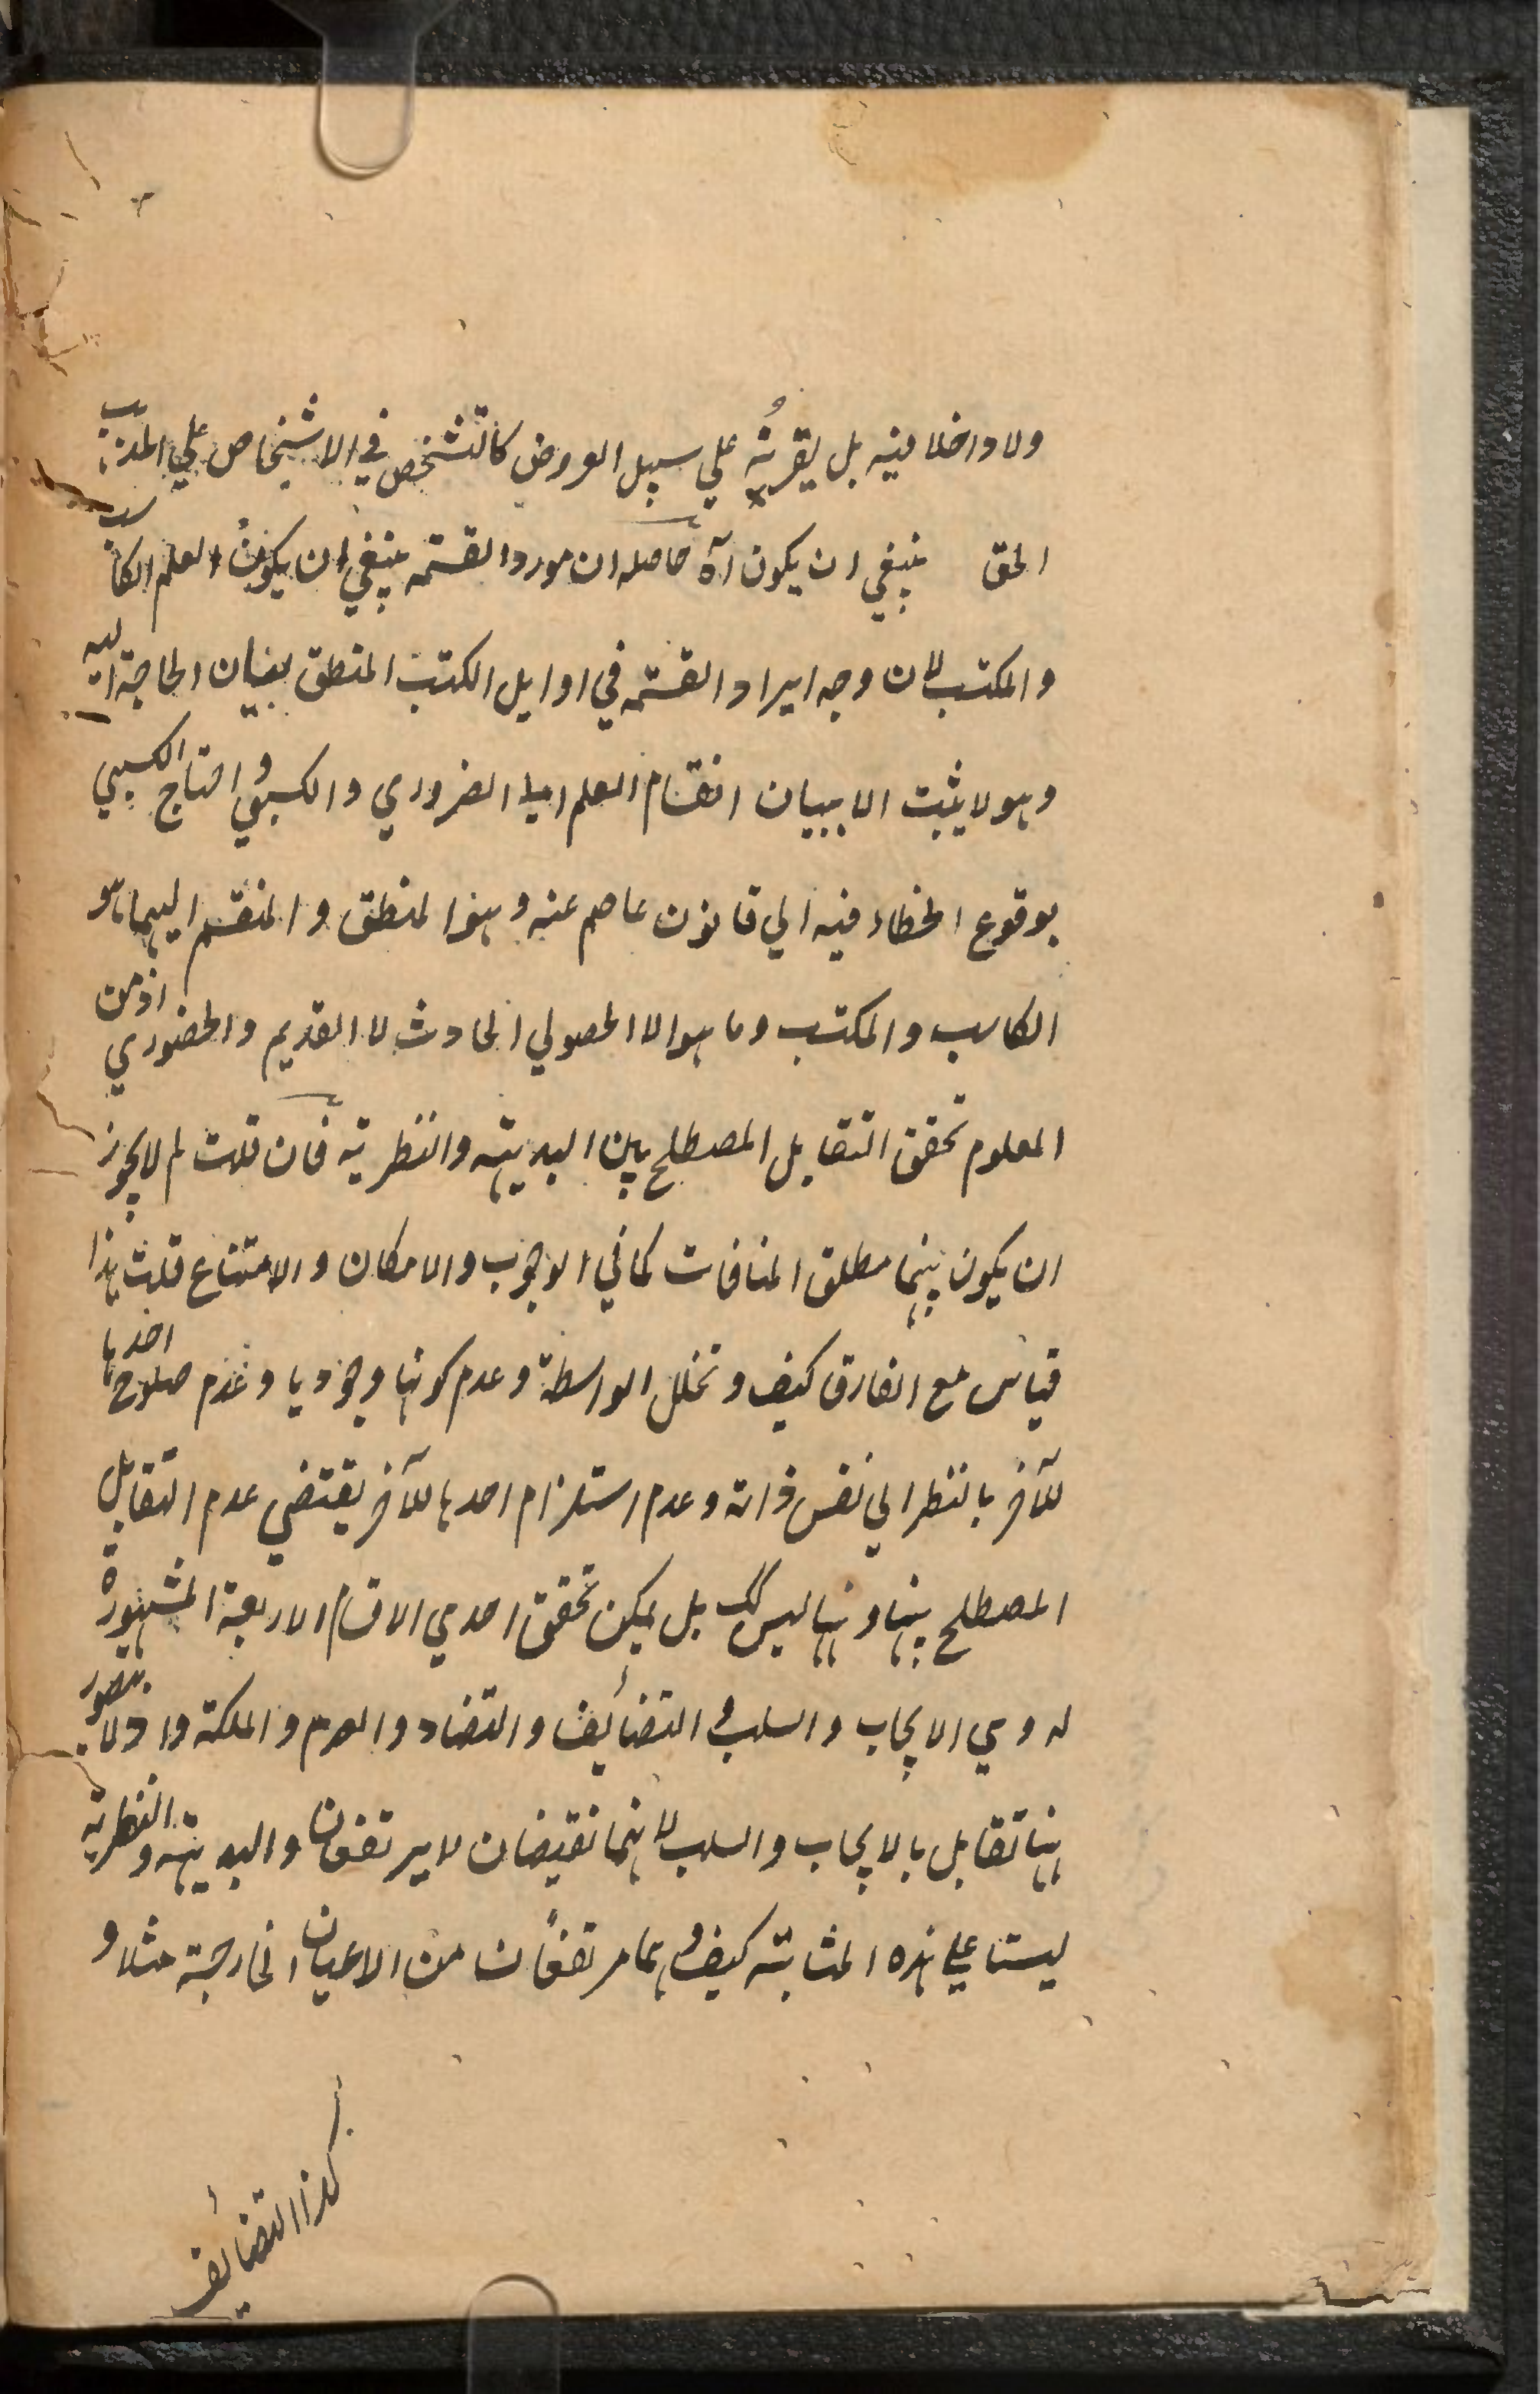 ولا داخلا فيه بل يقربه علي سبيل العروض كالتشخص في الاشخاص علي المذهب
الحق ينبغي ان يكون آه حاصله ان مورد القسمة ينبغي ان يكون العلم الكاسب
والمكتسب لان وجه ايراد القسمة في اوايل الكتب المنطق لبيان الحاجة اليه
وهو لا يثبت الا ببيان انقسام العلم الي الضروري والكسبي و احتاج الكسبي
بوقوع الخطاء فيه الي قانون عاصم عنه وهو المنطق والمنقسم اليهما هو
الكاسب والمكتسب وما هو الا الحصولي الحادث لا القديم والحضوري اذ من
المعلوم تحقق التقابل المصطلح بين البديهية والنظرية فان قلت لم لا يجوز
ان يكون بينهما مطلق المنافات كما في الوجوب والامكان والامتناع قلت هذا
قياس مع الفارق كيف و تخلل الواسطة وعدم كونها وجوديا وعدم صلوح احدها
للآخر بالنظر الي نفس ذاته وعدم استلزام احدها للآخر يقتضي عدم التقابل
المصطلح بينها وههنا ليس كك بل يمكن تحقق احدي الاقسام الاربعة المشهورة
له وهي الايجاب والسلب و التضائف والتضاد والعدم والملكة واذ لا يتصور
ههنا تقابل بالايجاب والسلب لانهما نقيضان لا يرتفعان والبديهية والنظرية
ليستا علي هذه المثابة كيف و هما مرتفعان من الاعيان الخارجية مثلا و
كذا التضائف